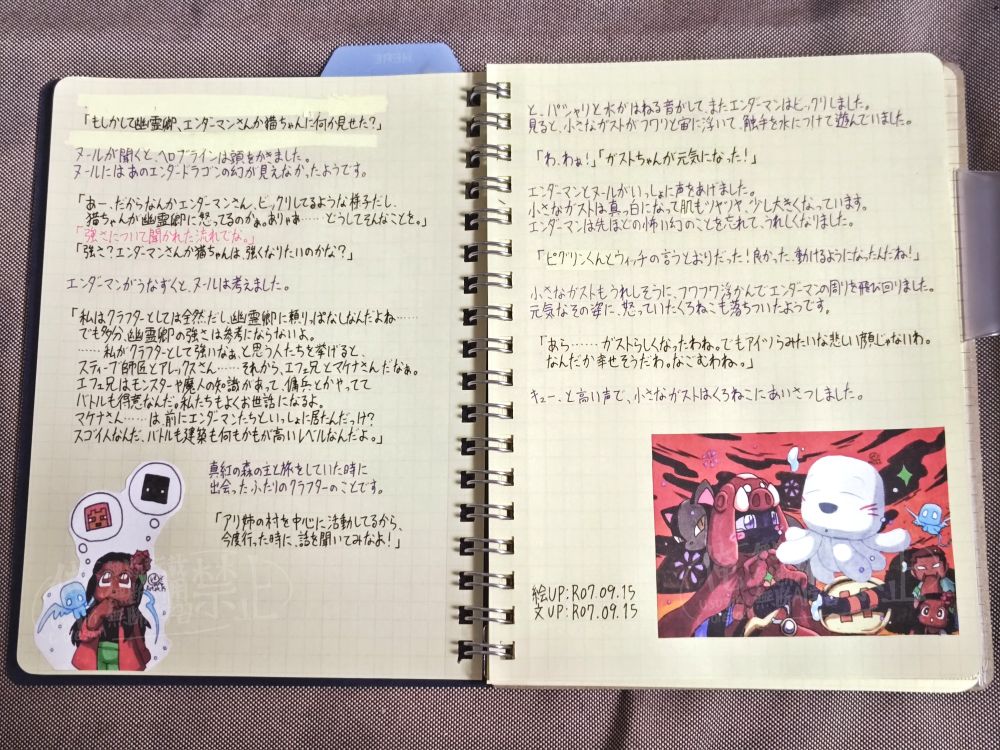 「もしかして幽霊卿、エンダーマンさんか猫ちゃんに何か見せた?」
ヌールが聞くと、ヘロブラインは頭をかきました。
ヌールにはあのエンダードラゴンの幻が見えなかったようです。
「あー、だからなんかエンダーマンさん、ビックリしてるような様子だし、
猫ちゃんが幽霊卿に怒ってるのかぁ。ありゃあ……どうしてそんなことを。」
「強さについて聞かれた流れでな。」
「強さ?エンダーマンさんか猫ちゃんは、強くなりたいのかな?」
エンダーマンがうなずくと、ヌールは考えました。
「私はクラフターとしては全然だし、幽霊卿に頼りっぱなしなんだよね……
でも多分、幽霊卿の強さは参考にならないよ。
……私がクラフターとして強いなぁ、と思う人たちを挙げると、
スティーブ師匠とアレックスさん……それから、エフェ兄とマケナさんだなぁ。
エフェ兄はモンスターや魔人の知識があって、傭兵とかやってて
バトルも得意なんだ。私たちもよくお世話になるよ。
マケナさん……は、前にエンダーマンたちといっしょに居たんだっけ?
スゴイ人なんだ、バトルも建築も何もかもが高いレベルなんだよ。」
真紅の森の主と旅をしていた時に
出会ったふたりのクラフターのことです。
「アリ姉の村を中心に活動してるから、
今度行った時に、話を聞いてみなよ!」
と、パシャリと水がはねる音がして、またエンダーマンはビックリしました。
見ると、小さなガストがフワリと宙に浮いて、触手を水につけて遊んでいました。
「わ、わぁ!」「ガストちゃんが元気になった!」
エンダーマンとヌールがいっしょに声をあげました。
小さなガストは真っ白になって肌もツヤツヤ、少し大きくなっています。
エンダーマンは先ほどの怖い幻のことを忘れて、うれしくなりました。
「ピグリンくんとウィッチの言うとおりだった!良かった、動けるようになったんだね!」
小さなガストもうれしそうに、フワフワ浮かんでエンダーマンの周りを飛び回りました。
元気なその姿に、怒っていたくろねこも落ちついたようです。
「あら……ガストらしくなったわね。でもアイツらみたいな悲しい顔じゃないわ。
なんだか幸せそうだわ。なごむわね。」
キュー、と高い声で、小さなガストはくろねこにあいさつしました。
絵UP:R07.09.15
文UP:R07.09.15